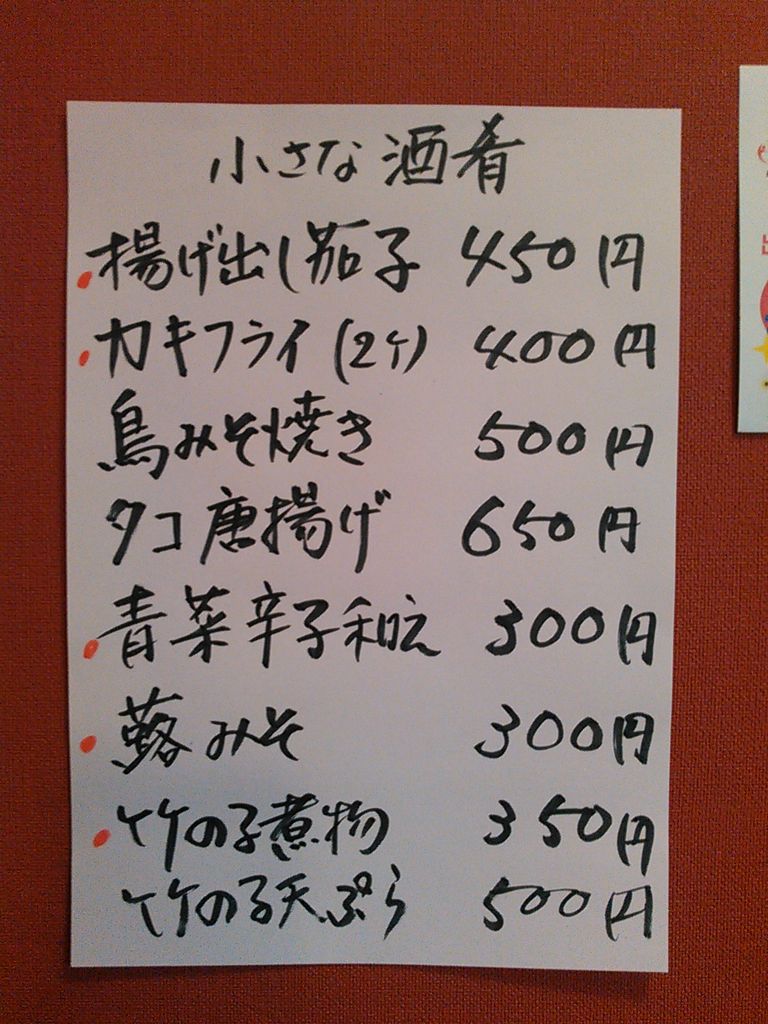 小さな酒肴
揚げ出し茄子 450円
カキフライ(2ケ) 400円
鳥みそ焼き 500円
タコ唐揚げ 650円
青菜辛子和え 300円
蕗みそ 300円
竹の子煮物 350円
竹の子天ぷら 500円